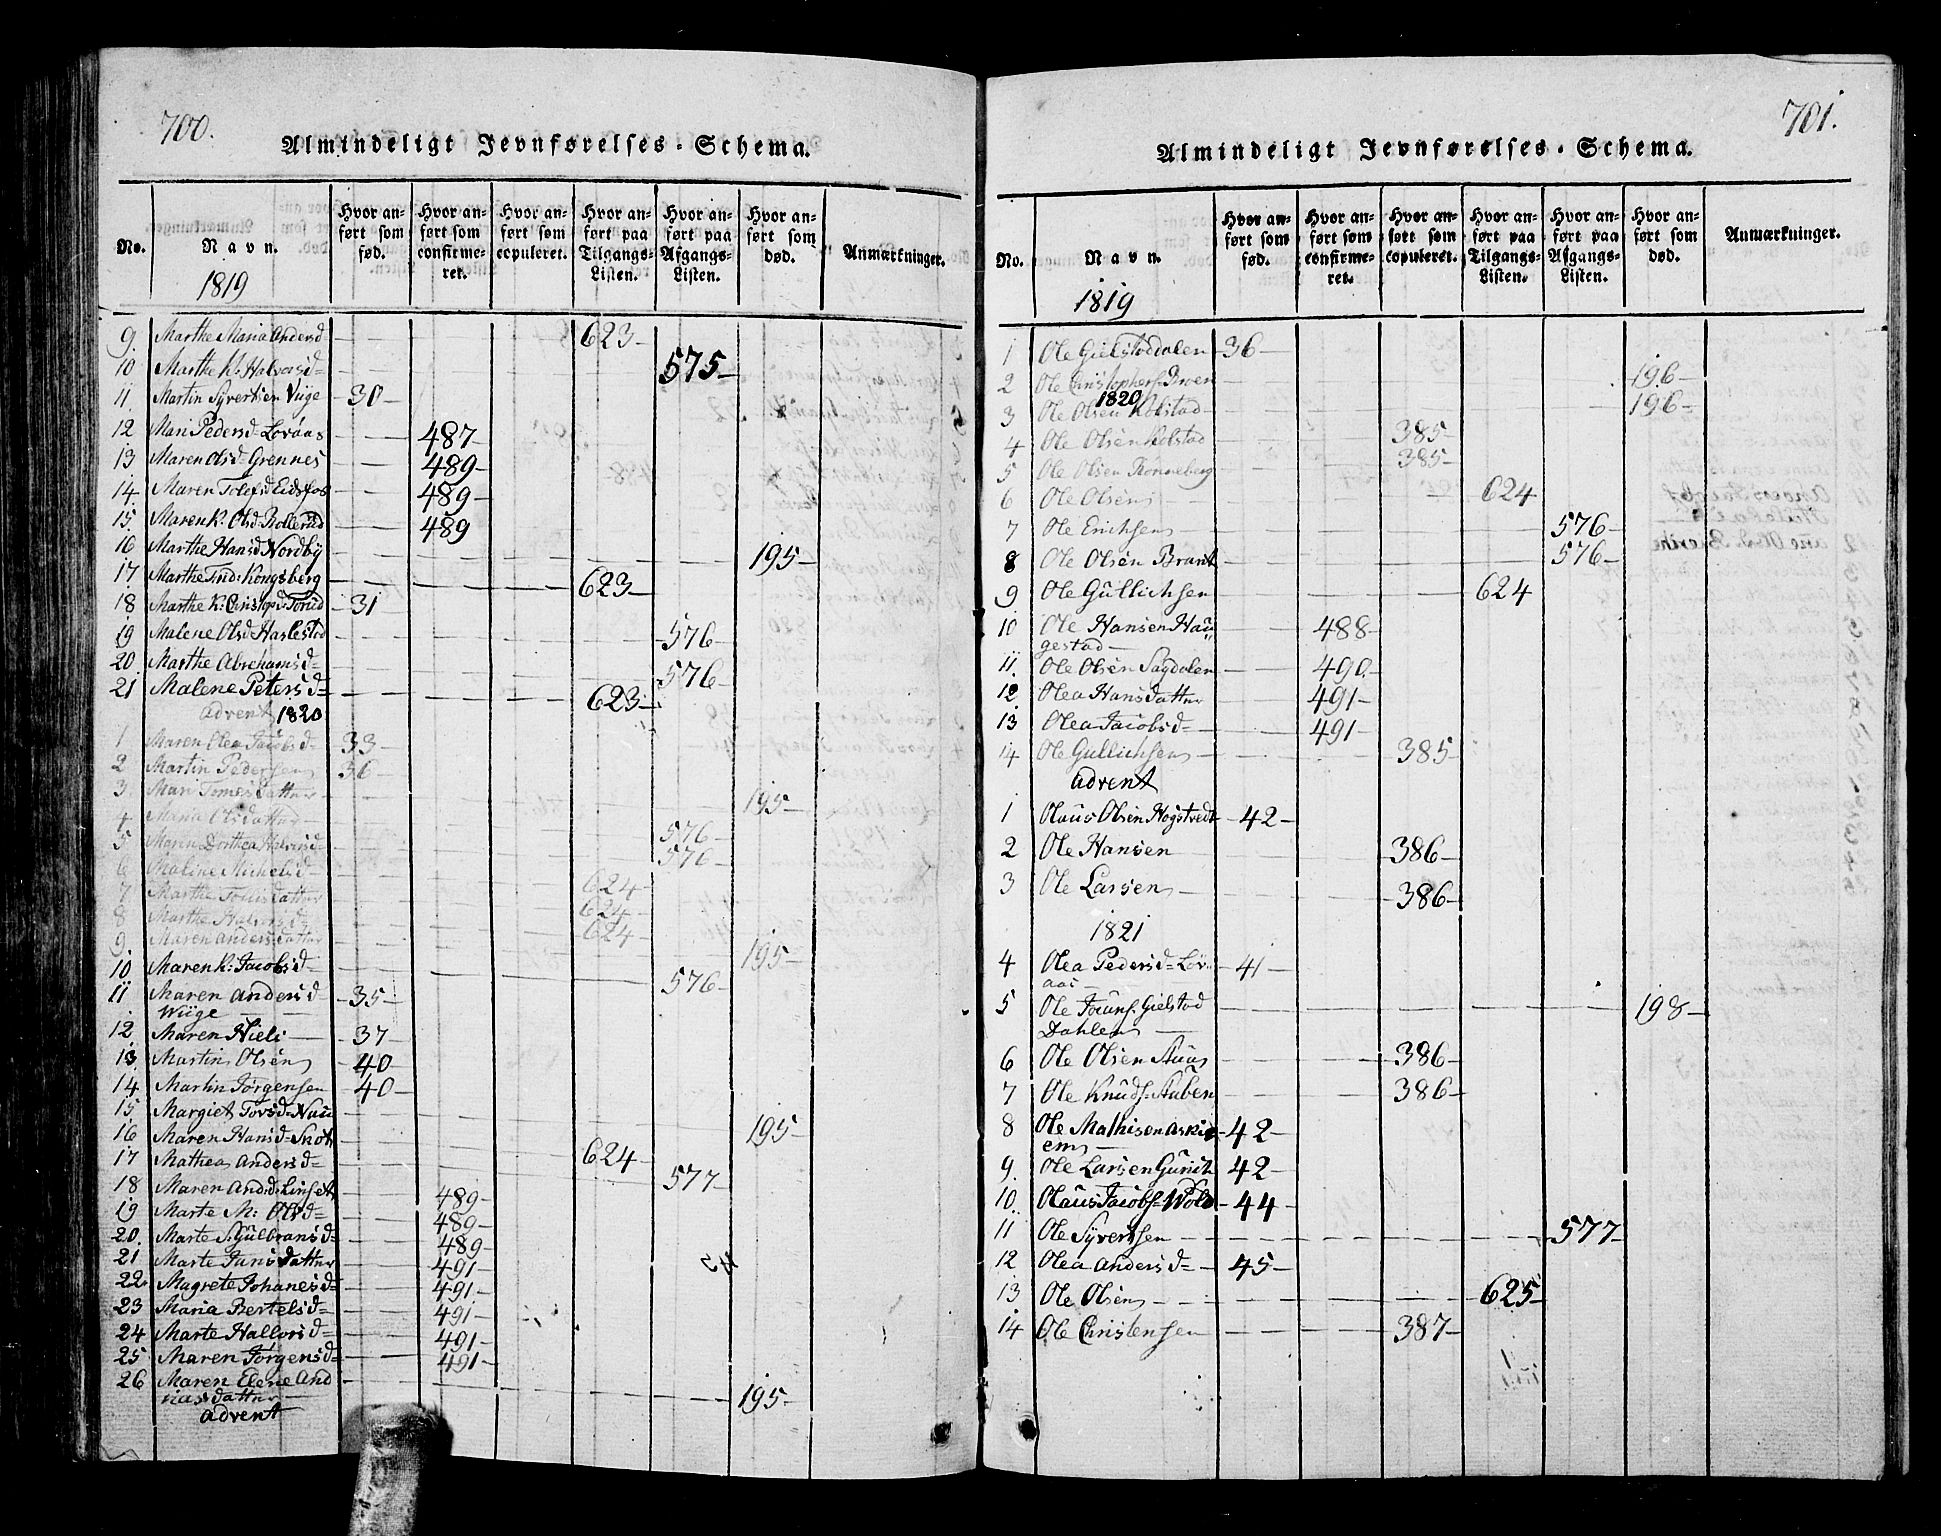 700.
Almindeligt Jevnførelses-Schema.
No.
Navn.
1819
Hvor anført som fød.
Hvor anført som confirmeret.
Hvor anført som copuleret.
Hvor anført paa Tilgangs-Listen.
Hvor anført paa Afgangs-Listen.
Hvor anført som død.
Anmærkninger.
9 Marthe Maria Andersd 623
10 Marthe K. Halvorsd= 575
11 Martin Syvertsen Viige 30
12 Mari Pedersd= Lovaas 487
13 Maren Olsd= Grennes 489
14 Maren Tolefsd Eidsfos 489
15 Maren K. Olsd= Bollerud 489
16 Marthe Hansd Nordby 195
17 Marthe Kongsberg 623
18 Marthe K: 31
19 Malene Olsd Haslestad 576
20 Marthe Abrahamsd= 576
21 Malene Petersd= 623
advent 1820
1 Maren Olea Jacobsd= 33
2 Martin Pedersen 36
3 Mari Tomesdatter 195
4 Maria Olsdatter 576
5 Maren Dorthea Halvorsd= 576
6 Maline Michelsd= 624
7 Marthe 624
8 Marthe Halvorsd= 624
9 Maren Andersdatter 195
10 Maren K: Jacobsd= 576
11 Maren Andersd= 35
Wiige
12 Maren Nieli 37
13 Martin Olsen 40
14 Martin Jørgensen 40
15 Margiet Torsd= 195
16 Maren Hansd= 624
17 Mathea Andersd= 577
18 Maren And:d: 489
19 Marte M: Olsd= 489
20 Marte S. Gulbransd= 489
21 Marte Junsdatter 491
22 Magrete Johanesd= 491
23 Maria Bertelsd= 491
24 Marte Hallorsd= 491
25 Maren Jørgensd= 491
26 Maren Elene And
reasdatter 195
advent
701.
Almindeligt Jevnførelses-Schema.
No.
Navn.
1819
Hvor anført som fød.
Hvor anført som confirmeret.
Hvor anført som copuleret.
Hvor anført paa Tilgangs-Listen.
Hvor anført paa Afgangs-Listen.
Hvor anført som død.
Anmærkninger.
1 Ole Gielstaddalen 36
2 Ole Christophers. 196
1820
3 Ole Olsen Kolstad 196
4 Ole Olsen Kolstad 385
5 Ole Olsen Rønneberg 385
6 Ole Olsen 624
7 Ole Erichsen 576
8 Ole Olsen Brant 576
9 Ole Gullichsen 624
10 Ole Hansen Hau
gestad 488
11 Ole Olsen Sagdalen 490
12 Olea Hansdatter 491
13 Olea Jacobsd= 491
14 Ole Gullichsen 385
advent
1 Olaus Olsen Hogstvedt 42
2 Ole Hansen 386
3 Ole Larsen 386
1821
4 Olea Pedersd= Løv
aas 41
5 Ole Gielstad
Dahlen 198
6 Ole Olsen 386
7 Ole Knuds. 386
8 Ole Mathisen Aski
em 42
9 Ole Larsen 42
10 Olaus Jacobs= Wold 44
11 Ole Syvertsen 577
12 Olea Andersd= 45
13 Ole Olsen 625
14 Ole Christensen 387